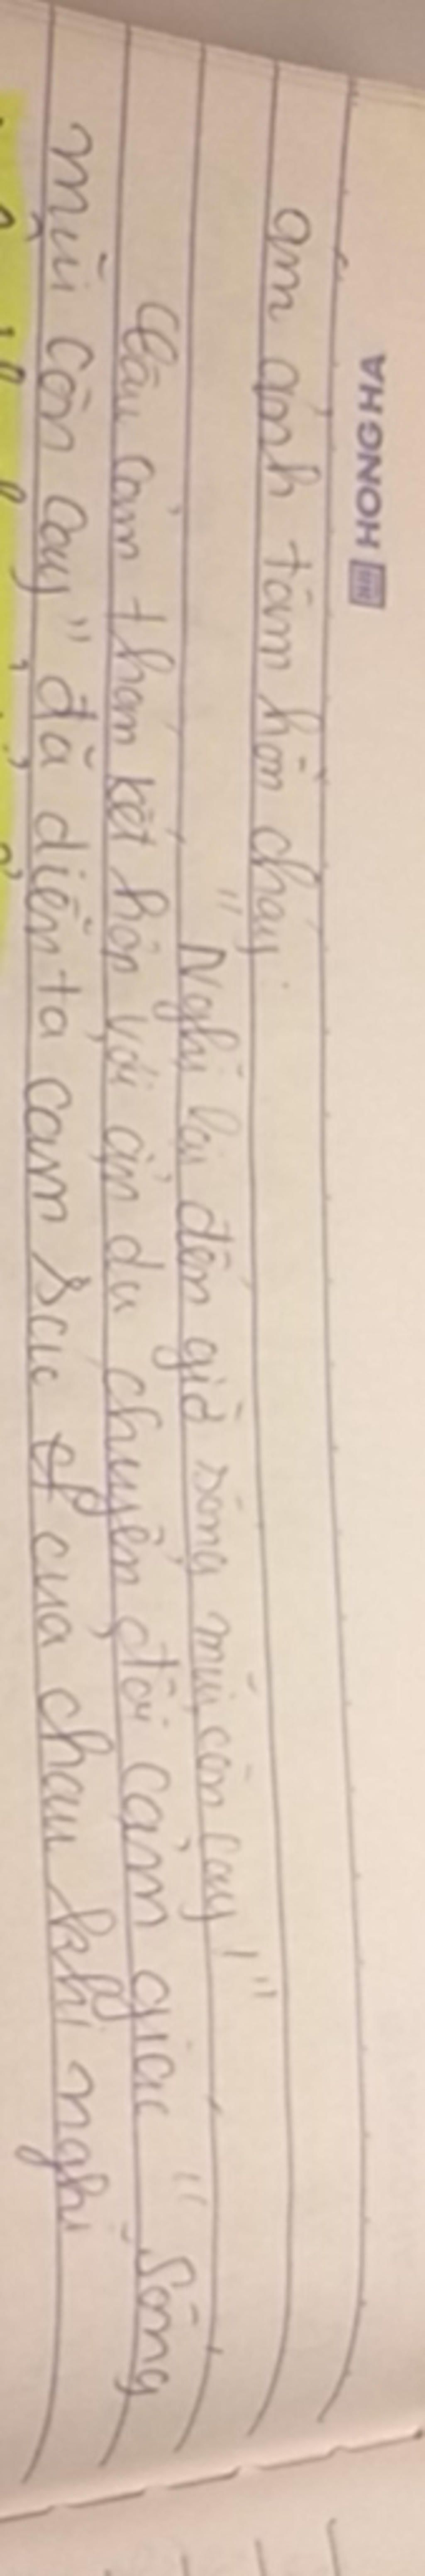 HONG HA
ám ảnh tâm hồn cháy.
"Nghĩ lại đến giờ sống mũi còn cay!"
Câu cảm thán kết hợp với ẩn dụ chuyển đổi cảm giác "Sống
mũi còn cay" đã diễn tả cảm xúc of của cháu khi nghĩ